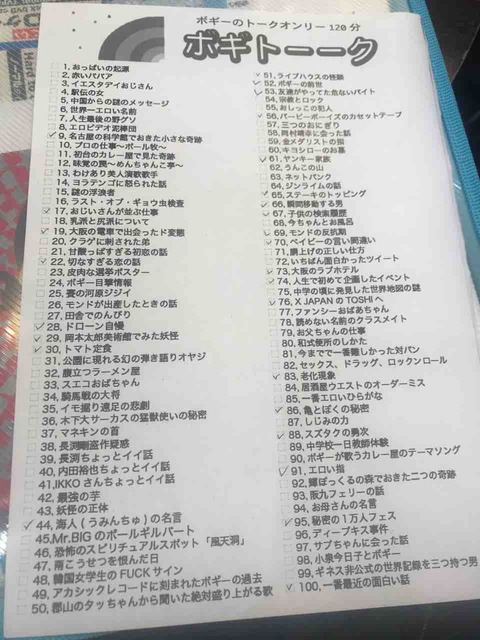 ボギーのトークオンリー120分
ボギトーーク
1, おっぱいの起源
2, 赤いパパア
3, イエスタデイおじさん
4, 駅伝の女
5, 中国からの謎のメッセージ
6, 世界一エロい名前
7, 人生最後の野グソ
8, エロビデオ泥棒団
9, 名古屋の科学館でおきた小さな奇跡
10, プロの仕事〜ポール牧〜
11, 初台のカレー屋で見た奇跡
12, 味覚の罠〜めんちゃんこ亭〜
13, わけあり美人演歌歌手
14, ヨラテンゴに怒られた話
15, 謎の浮浪者
16, ラスト・オブ・ギョウ虫検査
17, おじいさんが並ぶ仕事
18, 乳派と尻派について
19, 大阪の電車で出会ったド変態
20, クラゲに刺された弟
21, 甘酸っぱすぎる初恋の話
22, 切なすぎる恋の話
23, 皮肉な選挙ポスター
24, ボギー目撃情報
25, 賽の河原ジジイ
26, モンドが出産したときの話
27, 田舎でのんびり
28, ドローン自慢
29, 岡本太郎美術館でみた妖怪
30, トマト定食
31, 公園に現れる幻の弾き語りオヤジ
32, 腹立つラーメン屋
33, スエコおばちゃん
34, 騎馬戦の大将
35, イモ掘り遠足の悲劇
36, 木下大サーカスの猛獣使いの秘密
37, マネキンの首
38, 長渕剛盗作疑惑
39, 長渕ちょっとイイ話
40, 内田裕也ちょっとイイ話
41,IKKOさんちょっとイイ話
42, 最強の芋
43, 妖怪の正体
44, 海人(うみんちゅ)の名言
45,Mr.BIGのポールギルバート
46, 恐怖のスピリチュアルスポット「風天洞」
47, 南こうせつを恨んだ日
48, 韓国女学生のFUCKサイン
49, アカシックレコードに刻まれたボギーの過去
50, 郡山のタッちゃんから聞いた絶対盛り上がる歌
51, ライブハウスの怪談
52, ボギーの前世
53, 友達がやってた危ないバイト
54, 宗教とロック
55, おしっこの犯人
56, バービーボーイズのカセットテープ
57, 三つのおにぎり
58, 岡村靖幸に会った話
59, 金メダリストの指
60, キヨシローのお墓
61, ヤンキー家族
62, うんこの山
63, ネットパンク
64, ジンライムの話
65, ステーキのトッピング
66, 瞬間移動する男
67, 子供の検索履歴
68, 今ちゃんとお風呂
69, モンドの反抗期
70, ベイビーの言い間違い
71, 胴上げの正しい仕方
72, いちばん面白かったツイート
73, 大阪のラブホテル
74, 人生で初めて企画したイベント
75, 中学の頃に発見した世界地図の謎
76, X JAPANのTOSHIへ
77, ファンシーおばあちゃん
78, 読めない名前のクラスメイト
79, お父ちゃんの仕事
80, 和式便所のしかた
81, 今までで一番難しかった対バン
82, セックス、ドラッグ、ロックンロール
83, 老化現象
84, 居酒屋ウエストのオーダーミス
85, 一番エロいひらがな
86, 亀とぼくの秘密
87, しじみの力
88, スズタクの勇次
89, 中学校一日教師体験
90, ボギーが歌うカレー屋のテーマソング
91, エロい指
92, 蟬ぼっくるの森でおきた二つの奇跡
93, 阪九フェリーの話
94, お母さんの名言
95, 秘密の1万人フェス
96, ディープキス事件
97, サブちゃんに会った話
98, 小泉今日子とボギー
99, ギネス非公式の世界記録を三つ持つ男
100, 一番最近の面白い話